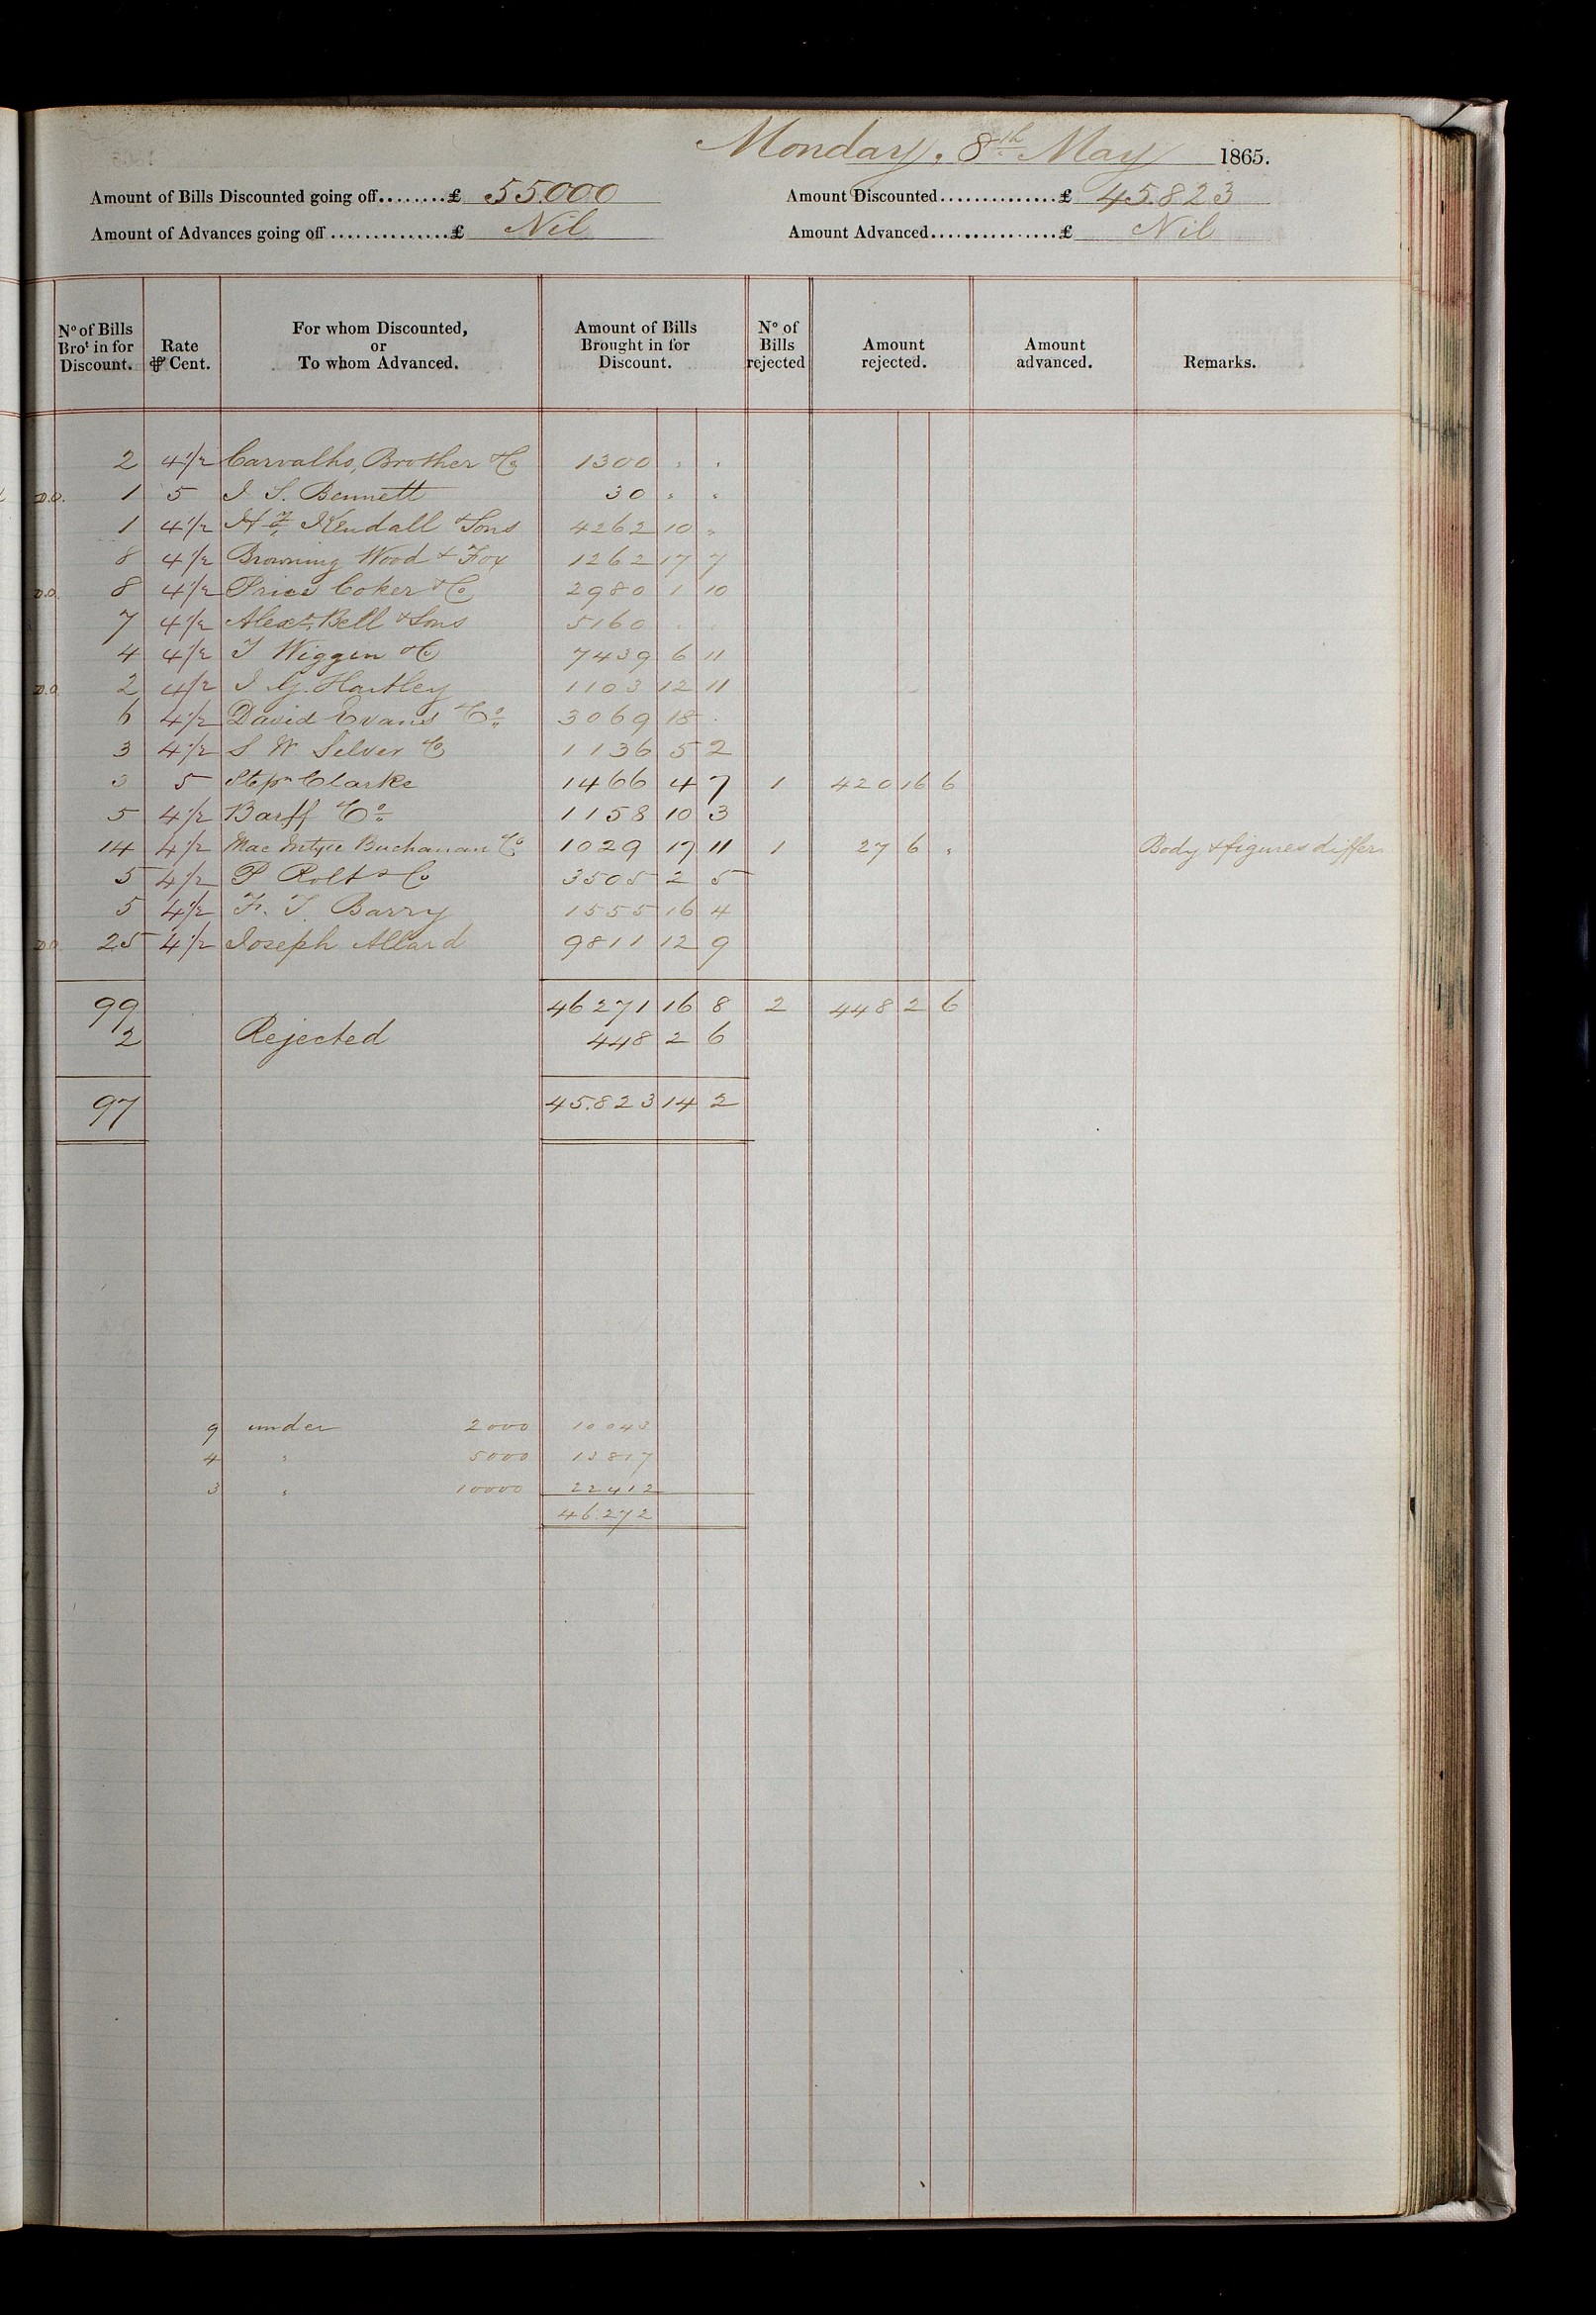 Monday, 8th May 1865.
Amount of Bills Discounted going off........£ 55.000 Amount Discounted..............£ 45.823
Amount of Advances going off ..............£ Nil Amount Advanced................£ Nil
No of Bills Brot in for Discount. Rate ⅌ Cent. For whom Discounted, or To whom Advanced. Amount of Bills Brought in for Discount. No of Bills rejected Amount rejected. Amount advanced. Remarks.
2 4½ Carvalho, Brother & Co 1300 " "
D.O. 1 5 J. S. Bennett 30 " "
1 4½ Hy Kendall & Sons 4262 10 "
8 4½ Browning Wood & Fox 1262 17 7
D.O. 8 4½ Price Coker & Co 2980 1 10
7 4½ Alexr Bell & Sons 5160 " "
4 4½ T Wiggin & Co 7439 6 11
D.O. 2 4½ J. G. Hartley 1103 12 11
6 4½ David Evans & Co 3069 18 "
3 4½ S. W. Silver & Co 1136 5 2
3 5 Stepn Clarke 1466 4 7 1 420 16 6
5 4½ Barff & Co 1158 10 3
14 4½ Mac Intyre Buchanan & Co 1029 17 11 1 27 6 " Body & figures differ
5 4½ P Rolt & Co 3505 2 5
5 4½ F. T. Barry 1555 16 4
D.O. 25 4½ Joseph Allard 9811 12 9
99 46271 16 8 2 448 2 6
2 Rejected 448 2 6
97 45.823 14 2
9 under 2000 10 043
4 " 5000 13 817
3 " 10000 22 412
46.272